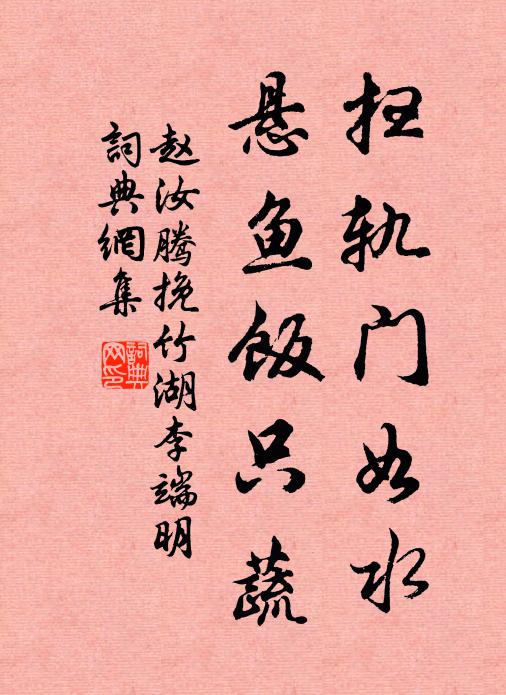 扫轨门如水
悬鱼饭只蔬
赵汝腾挽竹湖李端明
詞典網集
詞典网印